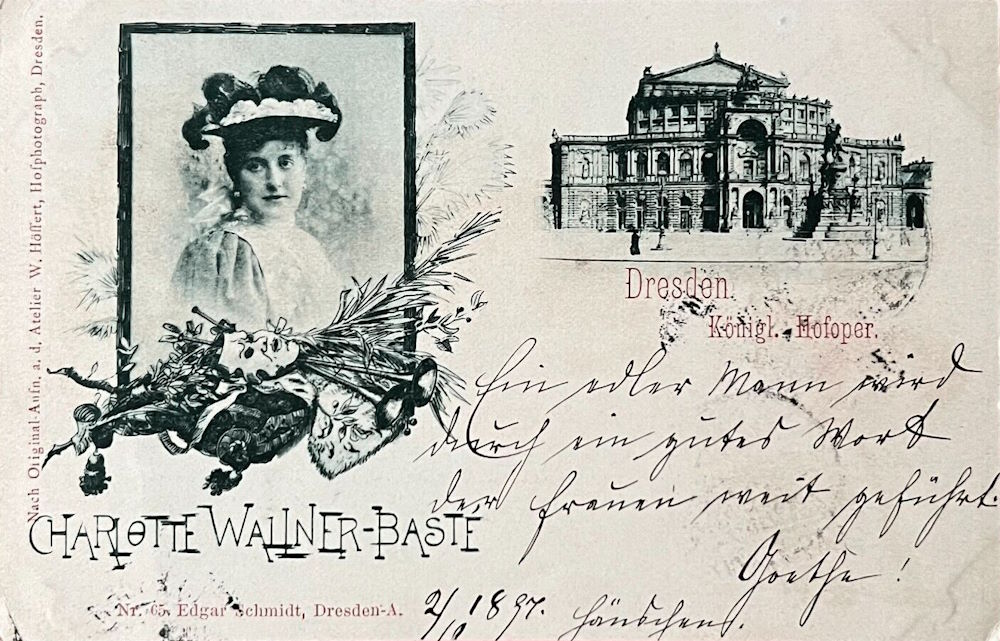 Nach Original-Aufn. a. d. Atelier W. Höffert, Hofphotograph, Dresden.
Dresden.
Königl. Hofoper.
Ein edler Mann wird
durch ein gutes Wort
der Frauen weit geführt.
Goethe!
CHARLOTTE WALLNER-BASTE
Nr. 65. Edgar Schmidt, Dresden-A.
1897. Hänschen.